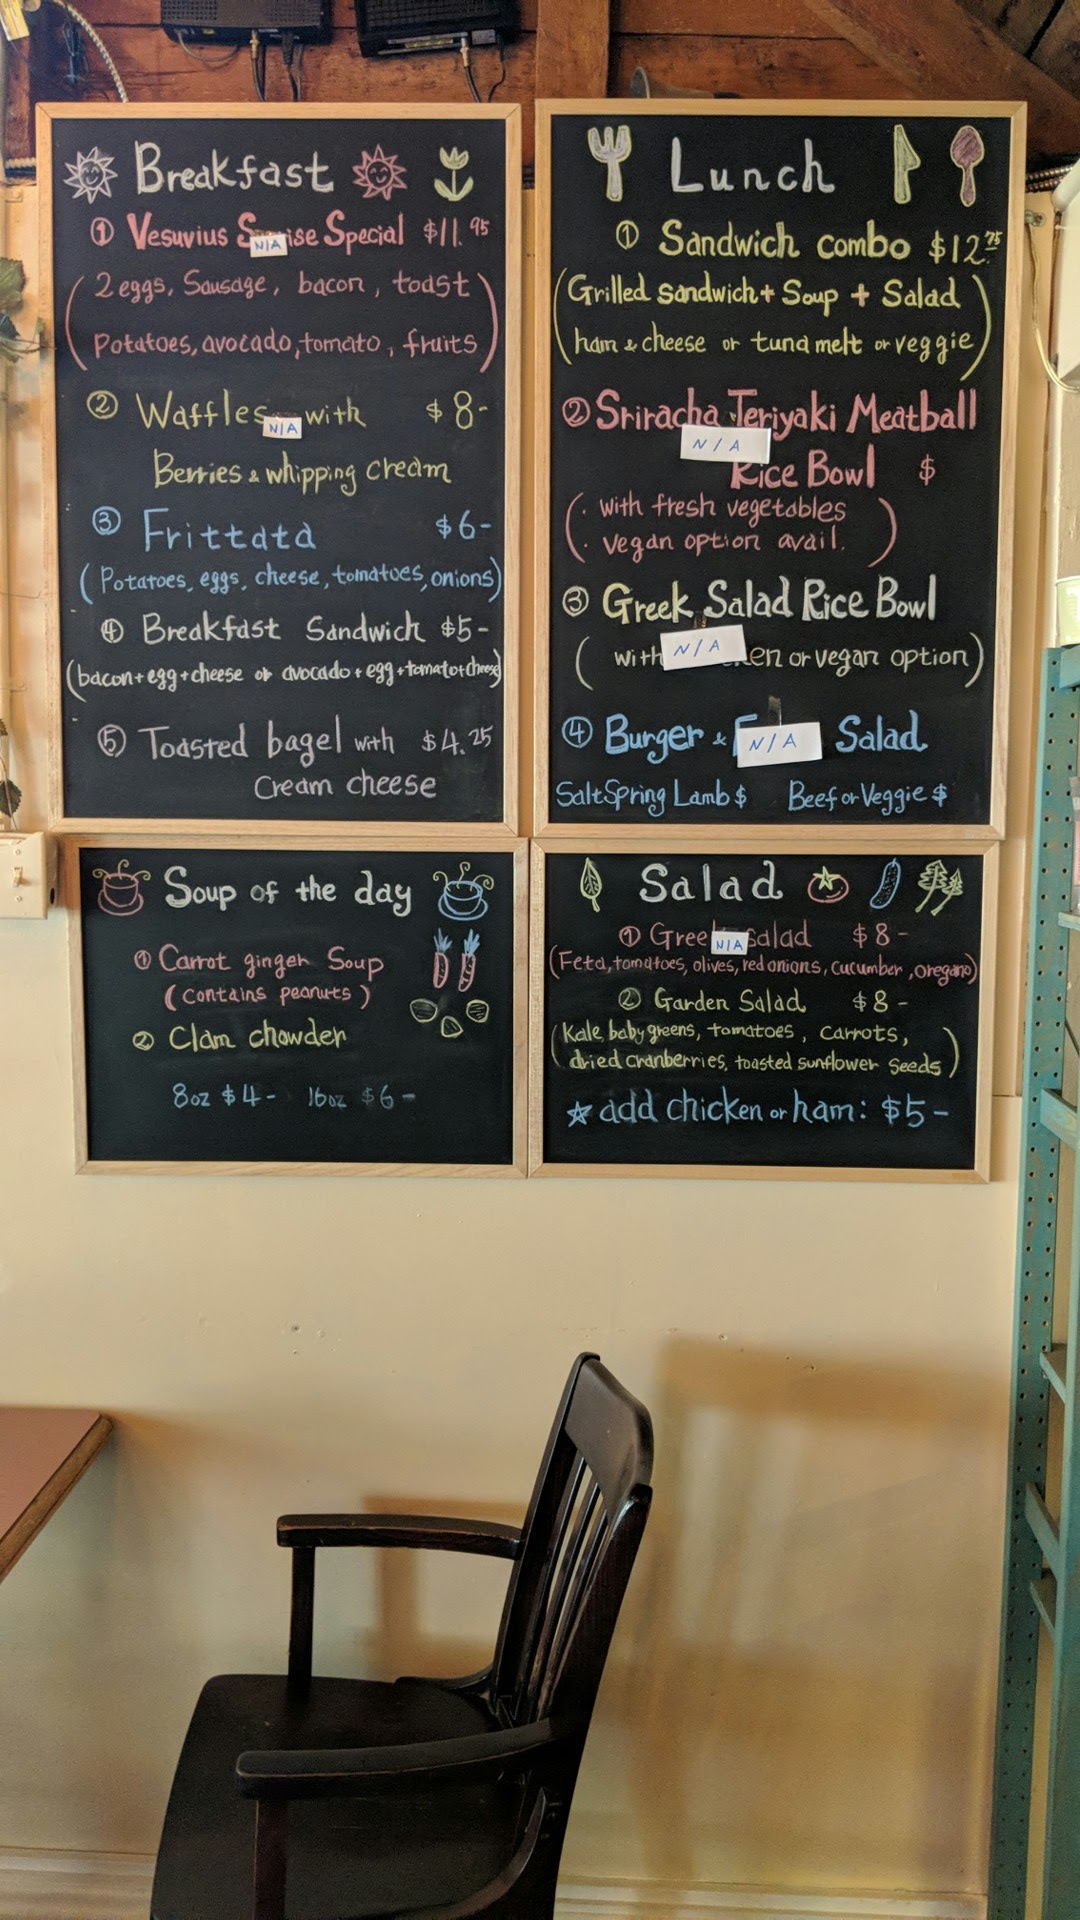 Breakfast
① Vesuvius S ise Special $11.95
N/A
(2 eggs, Sausage, bacon, toast
Potatoes, avocado, tomato, fruits)
② Waffles with $8-
N/A
Berries & whipping cream
③ Frittata $6-
(Potatoes, eggs, cheese, tomatoes, onions)
④ Breakfast Sandwich $5-
(bacon+egg+cheese or avocado+egg+tomato+cheese)
⑤ Toasted bagel with $4.25
Cream cheese
Lunch
① Sandwich combo $12.75
(Grilled sandwich + Soup + Salad
ham & cheese or tuna melt or veggie)
② Sriracha Teriyaki Meatball
N/A
Rice Bowl $
(· with fresh vegetables
· vegan option avail.)
③ Greek Salad Rice Bowl
N/A
(with en or vegan option)
④ Burger & F Salad
N/A
SaltSpring Lamb $ Beef or Veggie $
Soup of the day
① Carrot ginger Soup
(contains peanuts)
② Clam chowder
8oz $4- 16oz $6-
Salad
① Gree Salad $8-
N/A
(Feta, tomatoes, olives, red onions, cucumber, oregano)
② Garden Salad $8-
(Kale, baby greens, tomatoes, carrots,
dried cranberries, toasted sunflower seeds)
☆ add chicken or ham: $5-